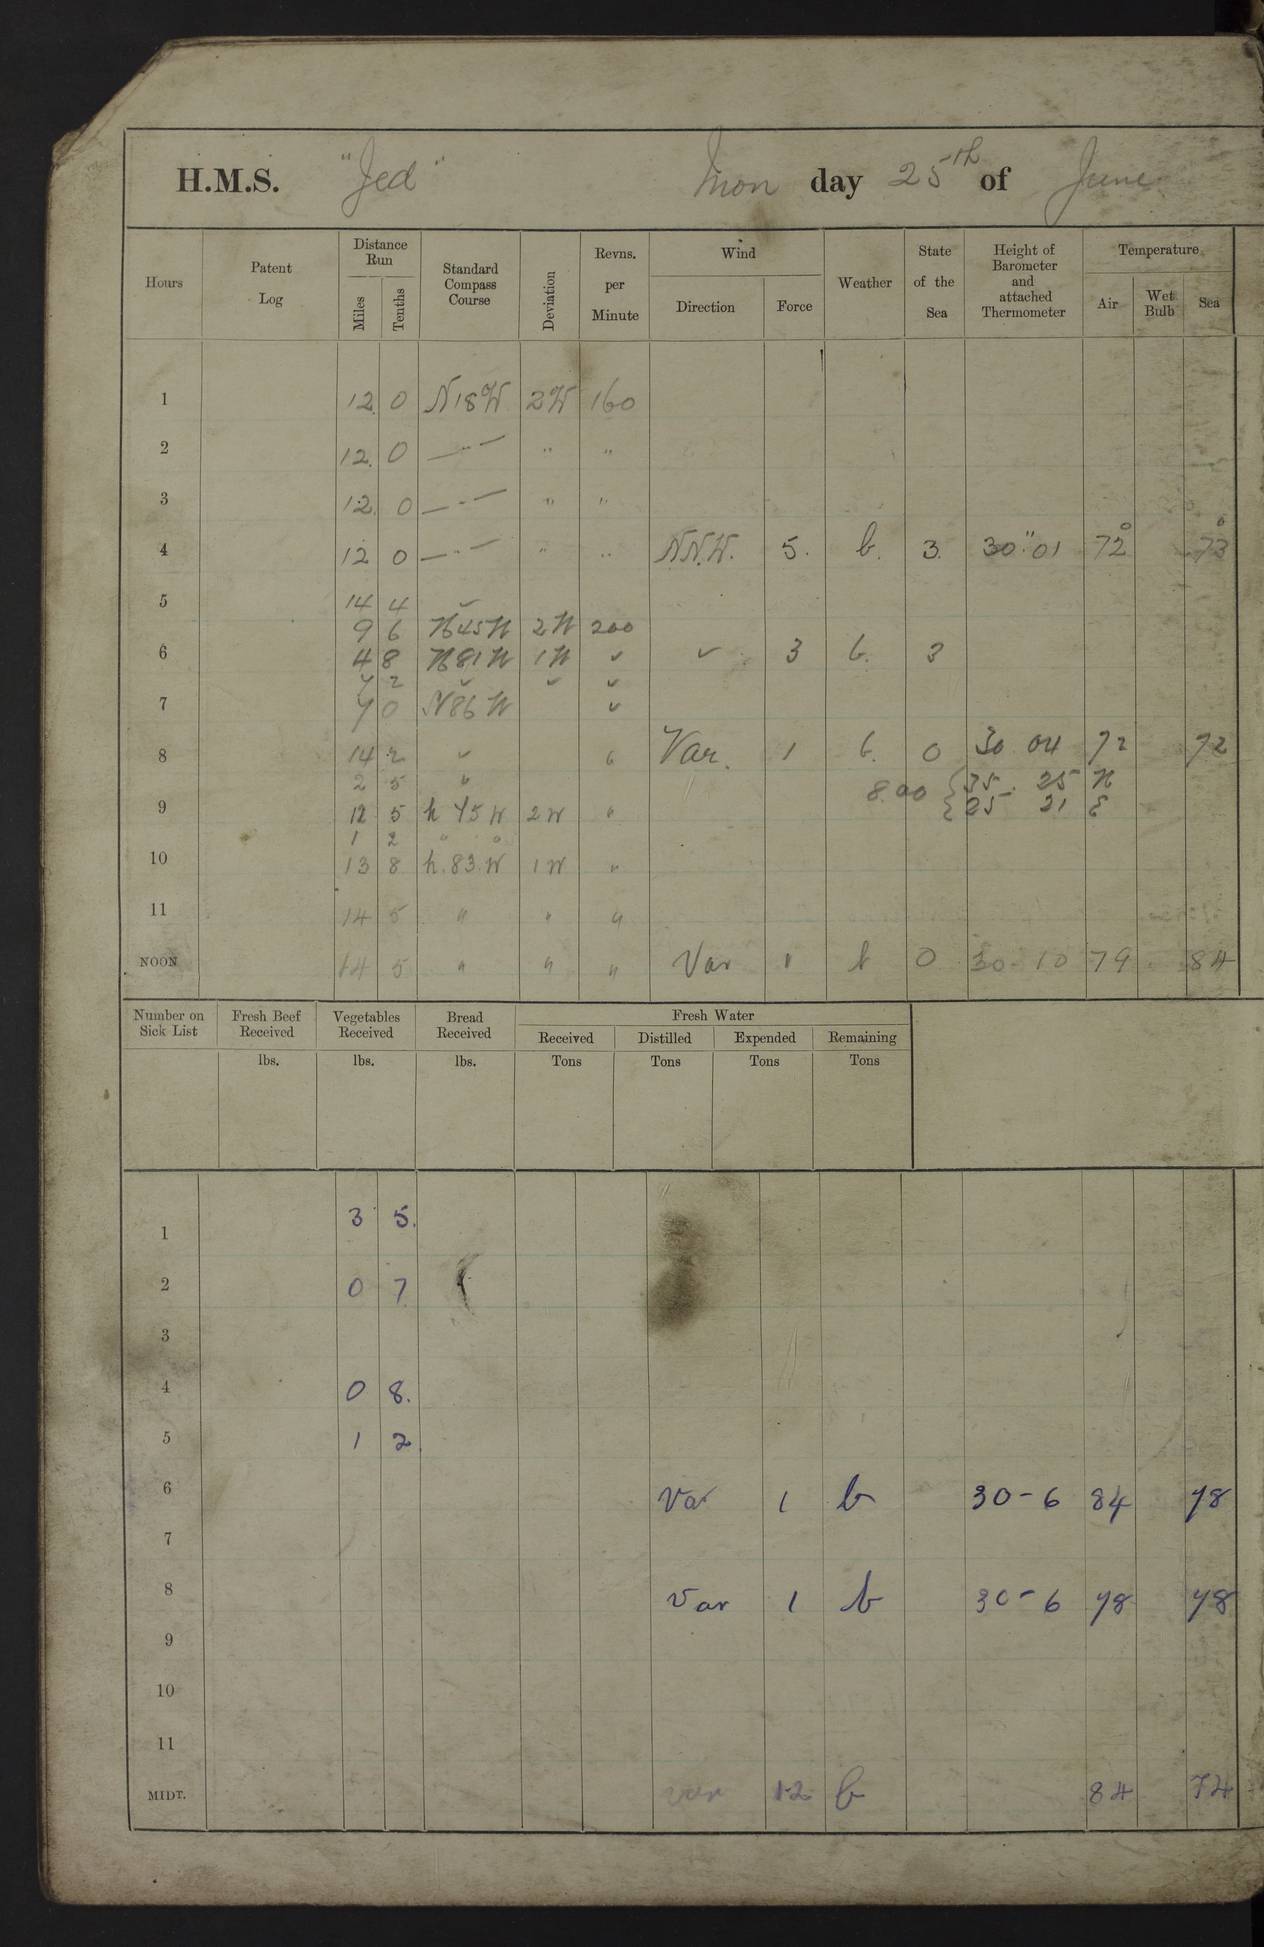 H.M.S. "Jed" Mon day 25th of June
Hours Patent Log Distance Run Miles Tenths Standard Compass Course Deviation Revns. per Minute Wind Direction Force Weather State of the Sea Height of Barometer and attached Thermometer Temperature Air Wet Bulb Sea
1 12. 0 N18W 2W 160
2 12. 0 —"— " "
3 12. 0 —"— " "
4 12 0 —"— " " N.N.W. 5. b. 3. 30".01 72° 73°
5 14 4 ✓
9 6 N45W 2W 200
6 4 8 N81W 1W ✓ ✓ 3 b. 3
7 2 ✓ ✓ ✓
7 7 0 N86W ✓
8 14 2 ✓ " Var. 1 b. 0 30 04 72 72
2 5 " 8.00 { 35. 25 N
9 12 5 N 75 W 2W " { 25 21 E
1 2 " "
10 13 8 N.83.W 1W "
11 14 5 " " "
NOON 14 5 " " " Var 1 b 0 30-10 79 84
Number on Sick List Fresh Beef Received Vegetables Received Bread Received Fresh Water
Received Distilled Expended Remaining
lbs. lbs. lbs. Tons Tons Tons Tons
1 3 5.
2 0 7
3
4 0 8.
5 1 2.
6 Var 1 b 30-6 84 78
7
8 Var 1 b 30-6 78 78
9
10
11
MIDT. var 1-2 b 84 74